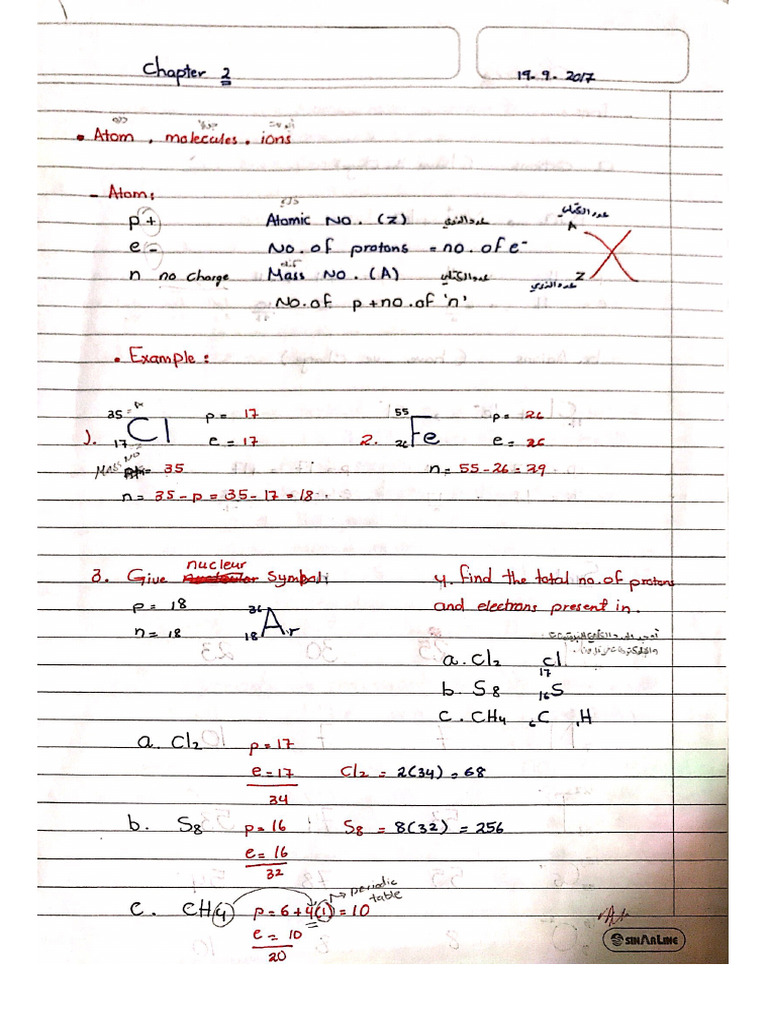 Chapter 2
19-9-2017
• Atom, molecules, ions
- Atom:
p +
Atomic No. (Z) عدد الذري
عدد الكتلي
A
e -
No. of protons = no. of e-
n no charge
Mass No. (A) عدد الكتلي
Z
عدد الذري
No. of p + no. of 'n'
• Example:
1. 35 17 Cl p = 17
e = 17
Mass No = 35
n = 35 - p = 35 - 17 = 18
2. 55 26 Fe p = 26
e = 26
n = 55 - 26 = 29
3. Give nucleur Symbol:
p = 18
n = 18
36 18 Ar
4. find the total no. of protons
and electrons present in.
a. Cl2 17 Cl
b. S8 16 S
c. CH4 6 C 1 H
a. Cl2 p = 17
e = 17 Cl2 = 2(34) = 68
34
b. S8 p = 16 S8 = 8(32) = 256
e = 16
32
periodic
table
c. CH4 p = 6 + 4(1) = 10
e = 10
20
SINARLINE